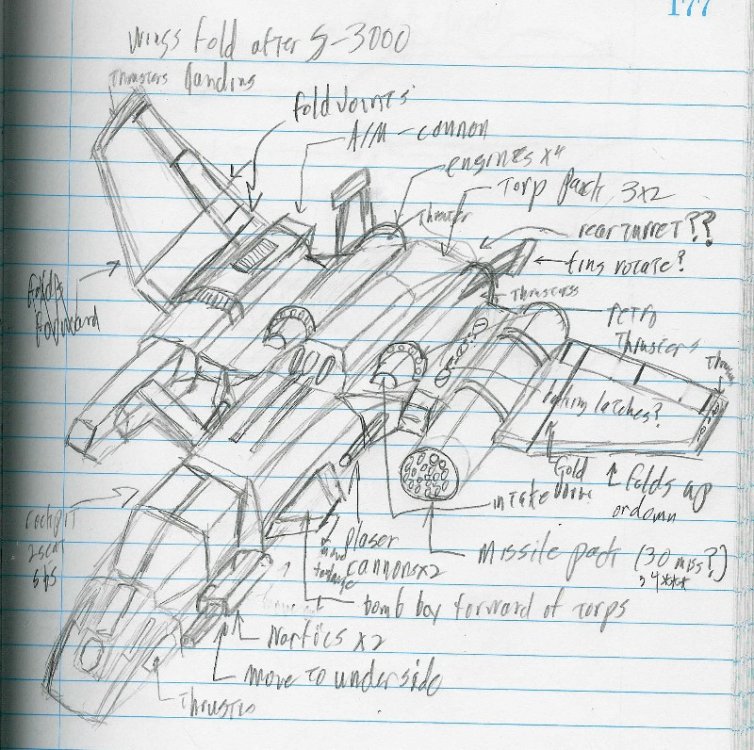 177
wings fold after S-3000
Thrusters landing
fold Joints
A/M-cannon
engines x4
Torp pack 3x2
Thruster
rear turret??
fins rotate?
Thrusters
retro
Thrusters
folds
forward
latches?
Gold
folds up
or down
intake
missile pack (30 miss?)
cockpit
2 seat
plaser
cannons x2
bomb bay forward of torps
x2
move to underside